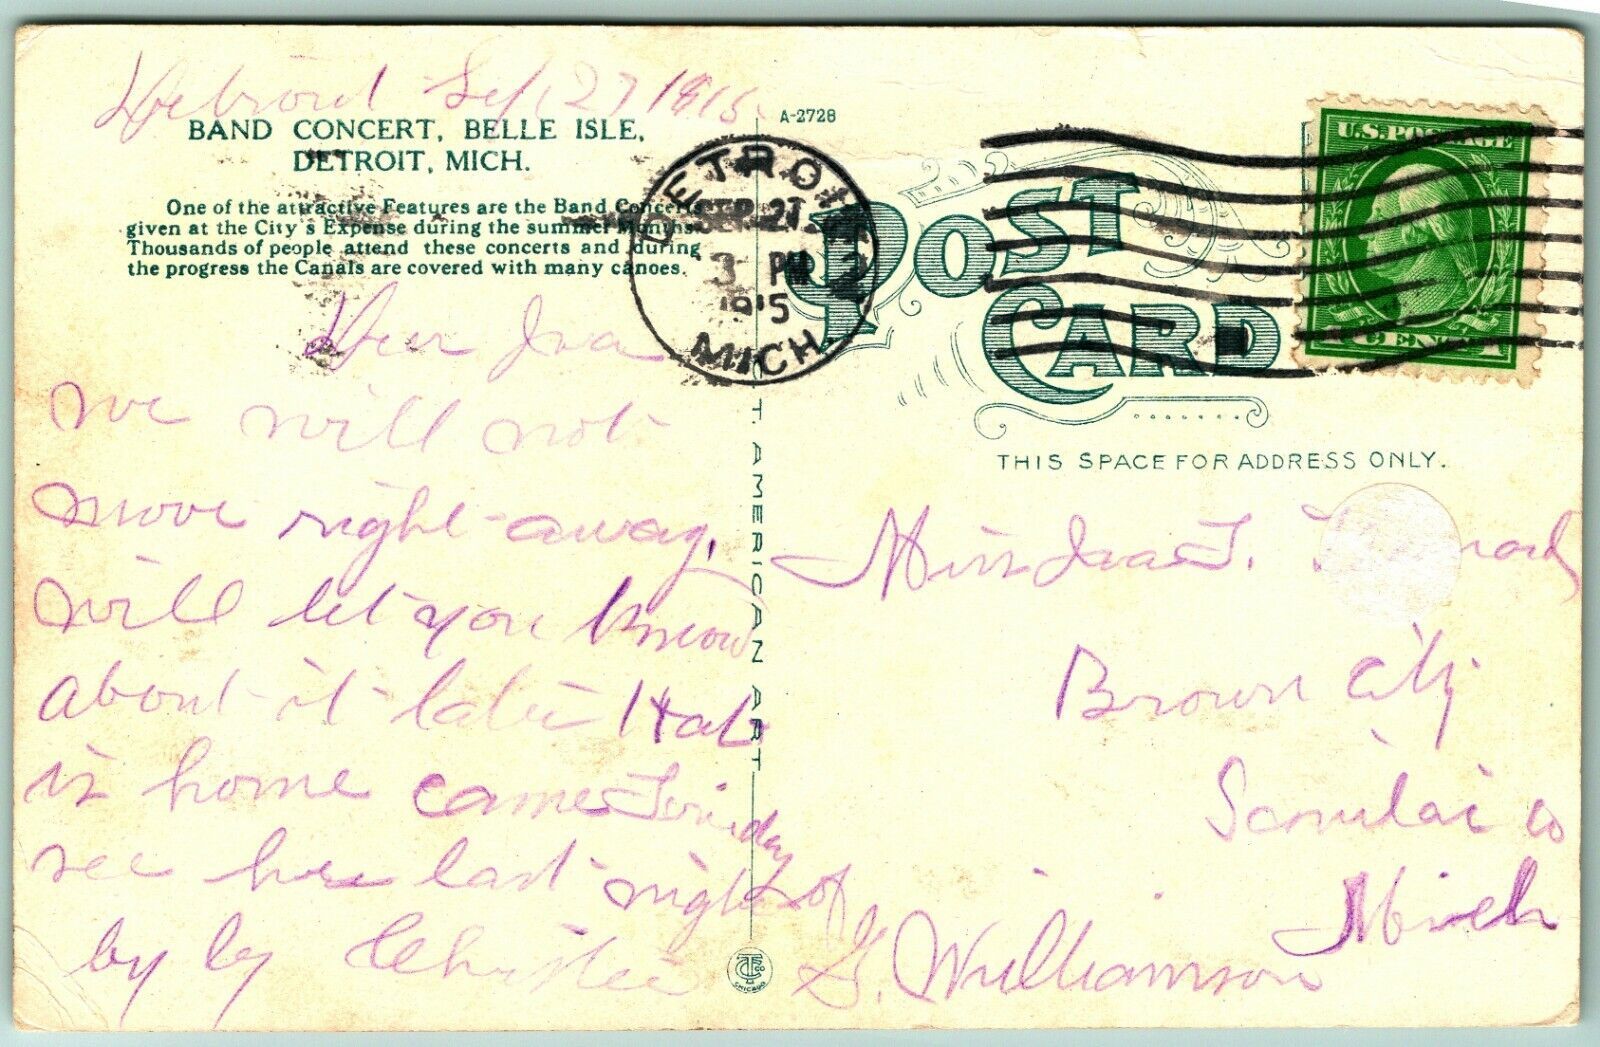 Detroit Sep 27 1915
BAND CONCERT, BELLE ISLE,
DETROIT, MICH.
One of the attractive Features are the Band Concerts
given at the City's Expense during the summer Months.
Thousands of people attend these concerts and during
the progress the Canals are covered with many canoes.
Dear Iva
we will not
move right away.
will let you know
about it later Hat
is home came
see her last night
by by Christie
A-2728
ETROIT
SEP 27
3 PM
1915
MICH.
T. AMERICAN ART
C.T. CO
CHICAGO
POST
CARD
U.S. POSTAGE
1 CENT 1
THIS SPACE FOR ADDRESS ONLY.
Miss Iva
Brown City
Sanilac Co
Mich
% of
G. Williamson